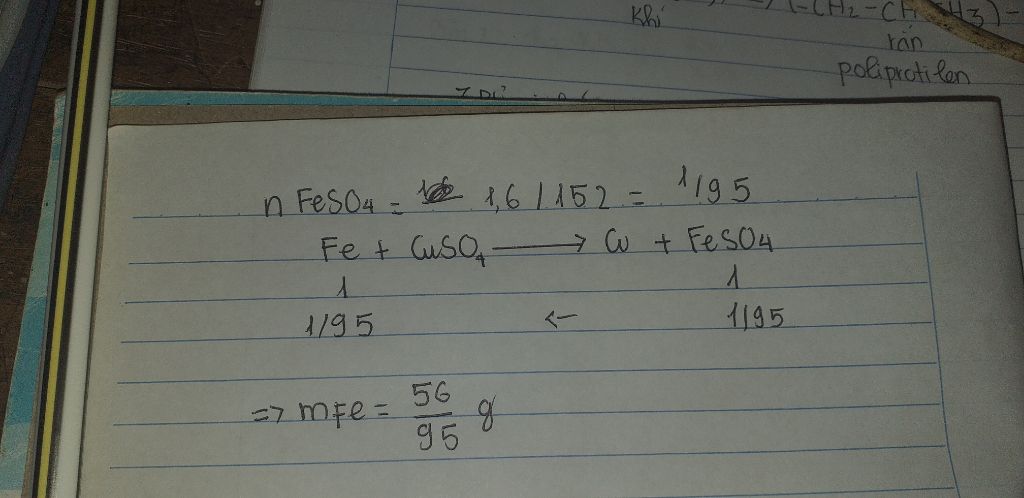 (-CH2-CH
H3)-
Khí
rán
poliprotilen
n FeSO4 = 1,6 / 152 = 1/95
Fe + CuSO4 ⟶ Cu + FeSO4
1 1
1/95 ← 1/95
=> mFe = 56/95 g